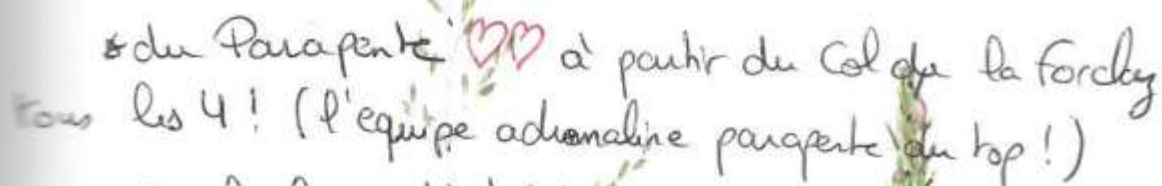 * du Parapente ♡♡ à partir du Col de la Forclaz
Tous les 4 ! (l'equipe adrenaline parapente du top !)